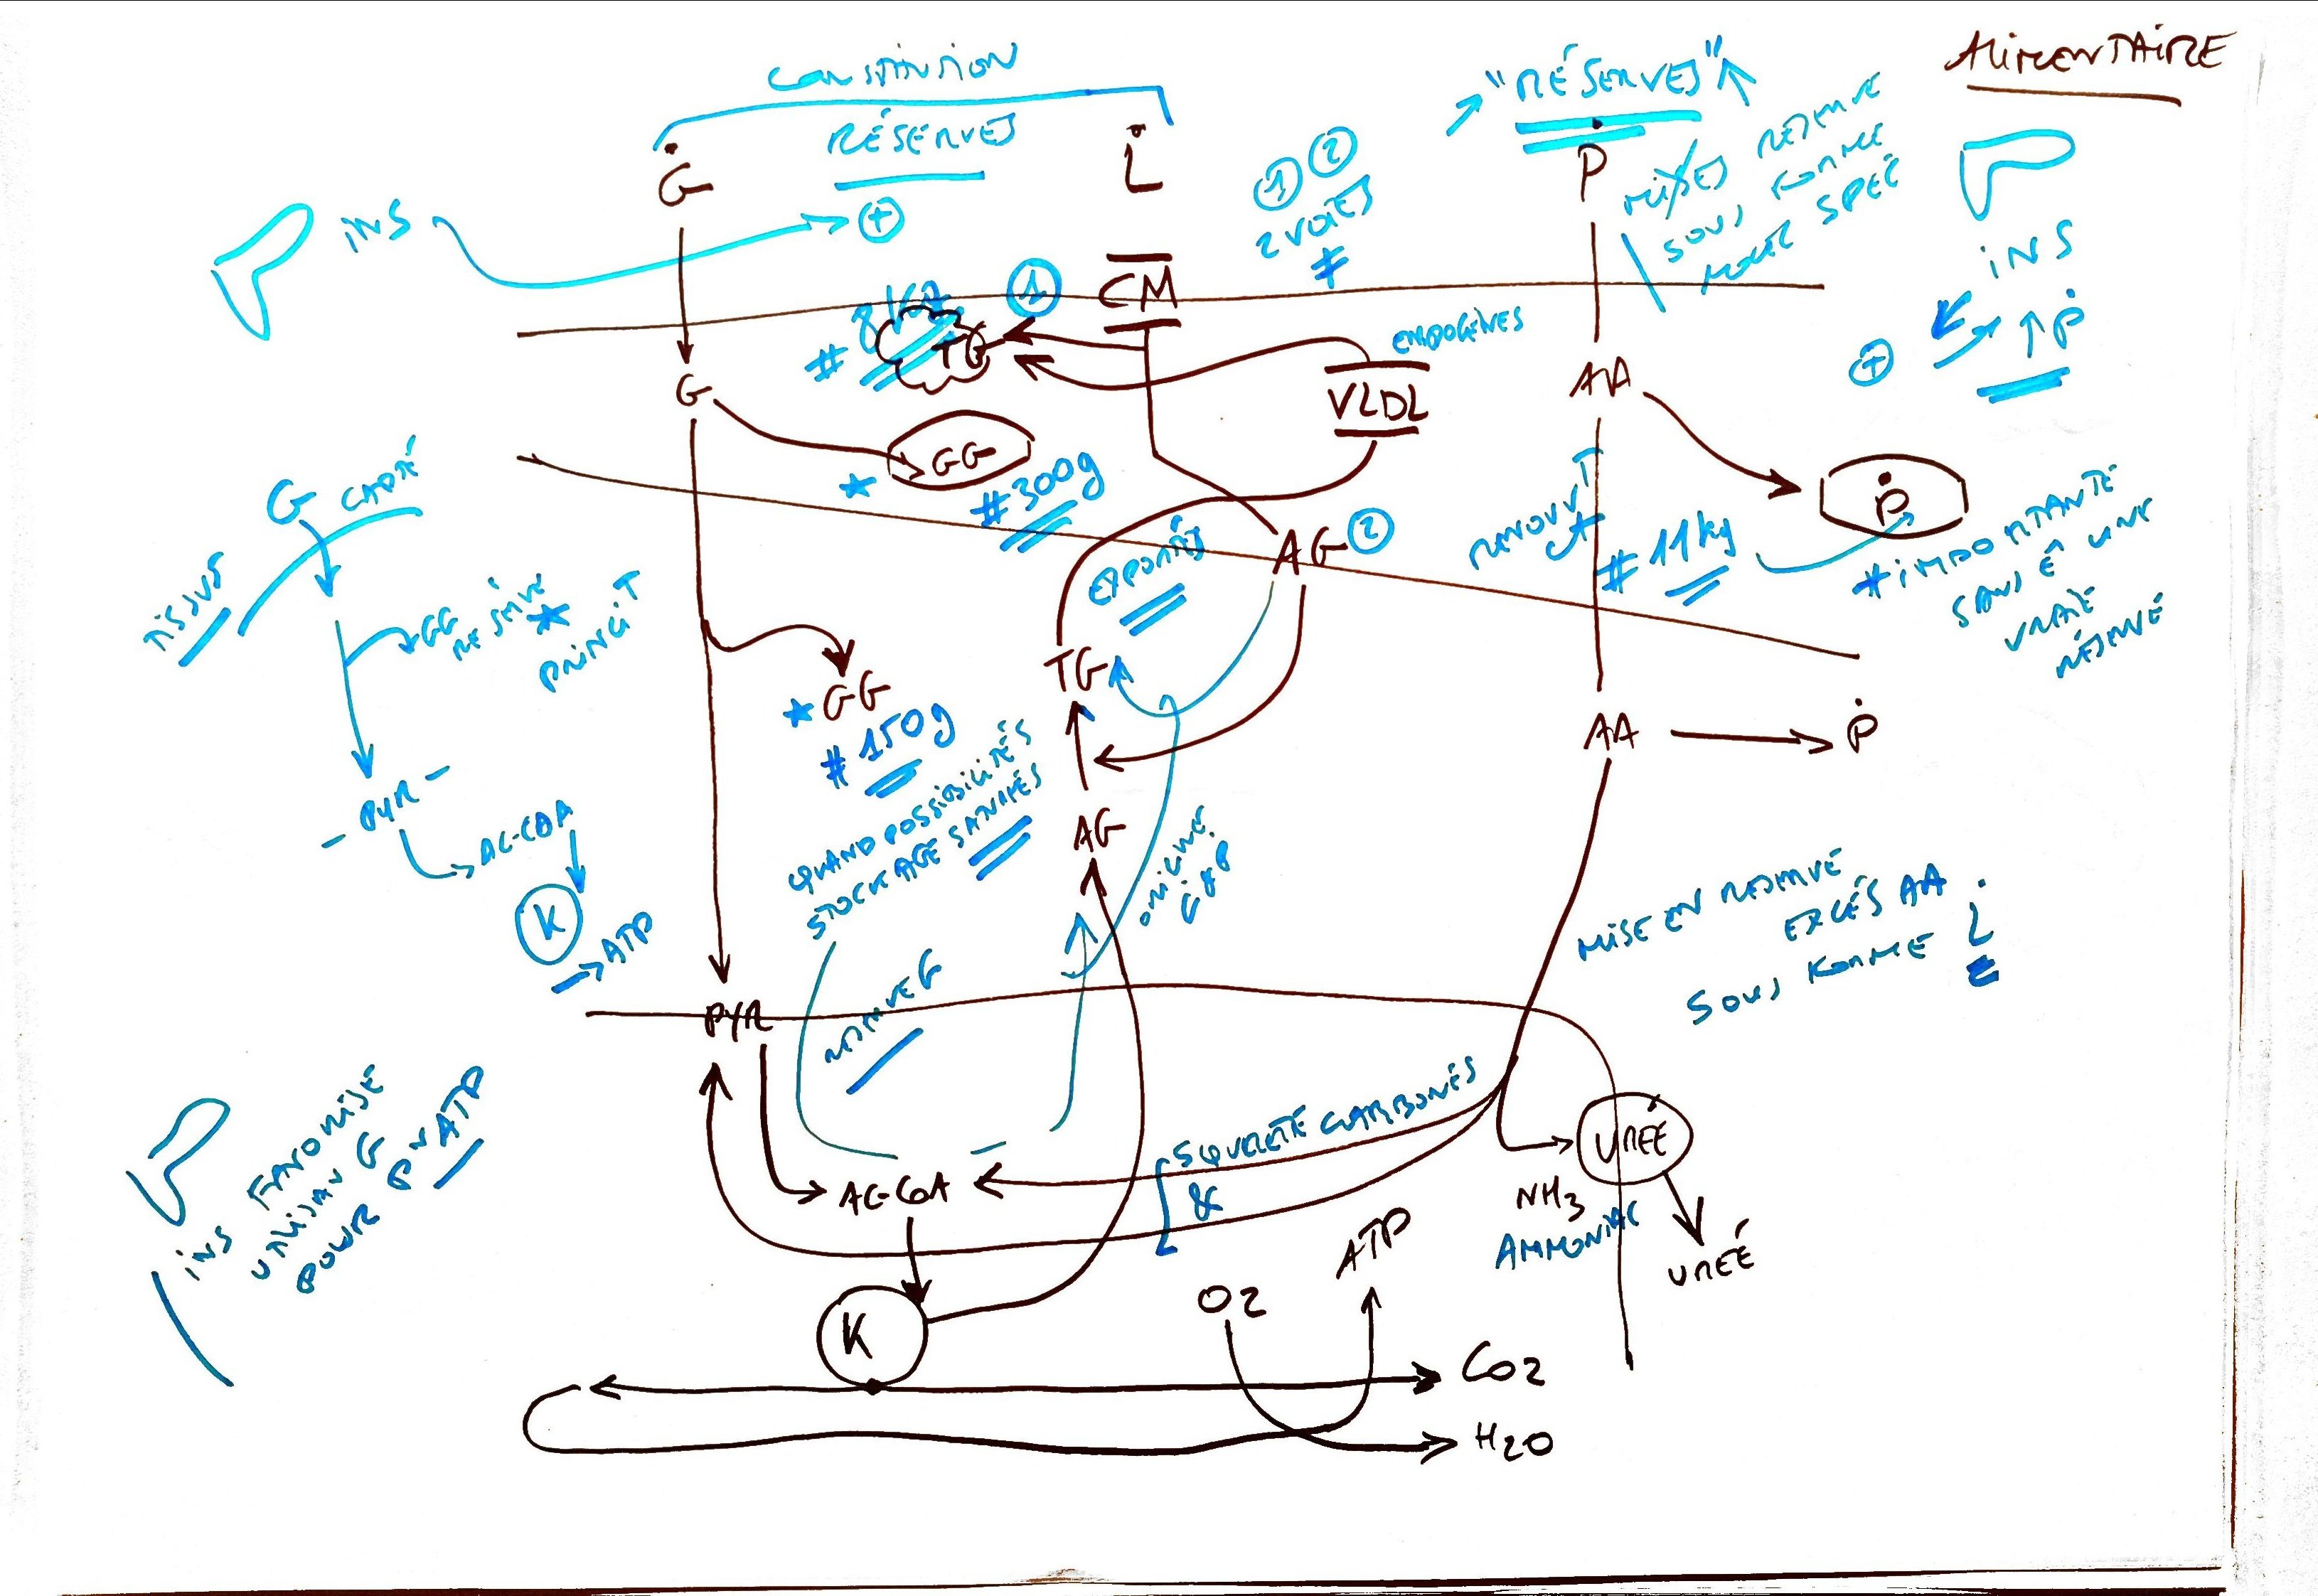 ALIMENTAIRE
CONSTITUTION
RÉSERVES
G
L
"RÉSERVES"
P
MISES RÉSERVE
SOUS FORME
SPÉÉ
INS
+
1 2
2 VOIES
#
INS
↑ P
+
CM
# 8 kg
TG
1
ENDOGÈNES
VLDL
G
GG
*
# 300g
AA
P
RENOUVT
# 11kg
# IMPORTANTE
SANS Ê UNE
VRAIE
RÉSERVE
G CAPTÉ
TISSUS
GG
RÉSERVE
*
PRINCIT
PYR
AC-COA
K
ATP
AG 2
EXPORTÉS
TG
* GG
# 150g
AA
P
QUAND POSSIBILITÉS
STOCKAGE SATURÉES
AG
ORIGINE
G & P
MISE EN RÉSERVE
EXCÉS AA
SOUS FORME L
RÉSERVE G
PYR
INS FAVORISE
UTILISAN G
POUR PN ATP
SQUELETTE CARBONÉS
&
AC-COA
URÉÉ
NH3
AMMONIAC
URÉÉ
K
O2
ATP
CO2
H2O